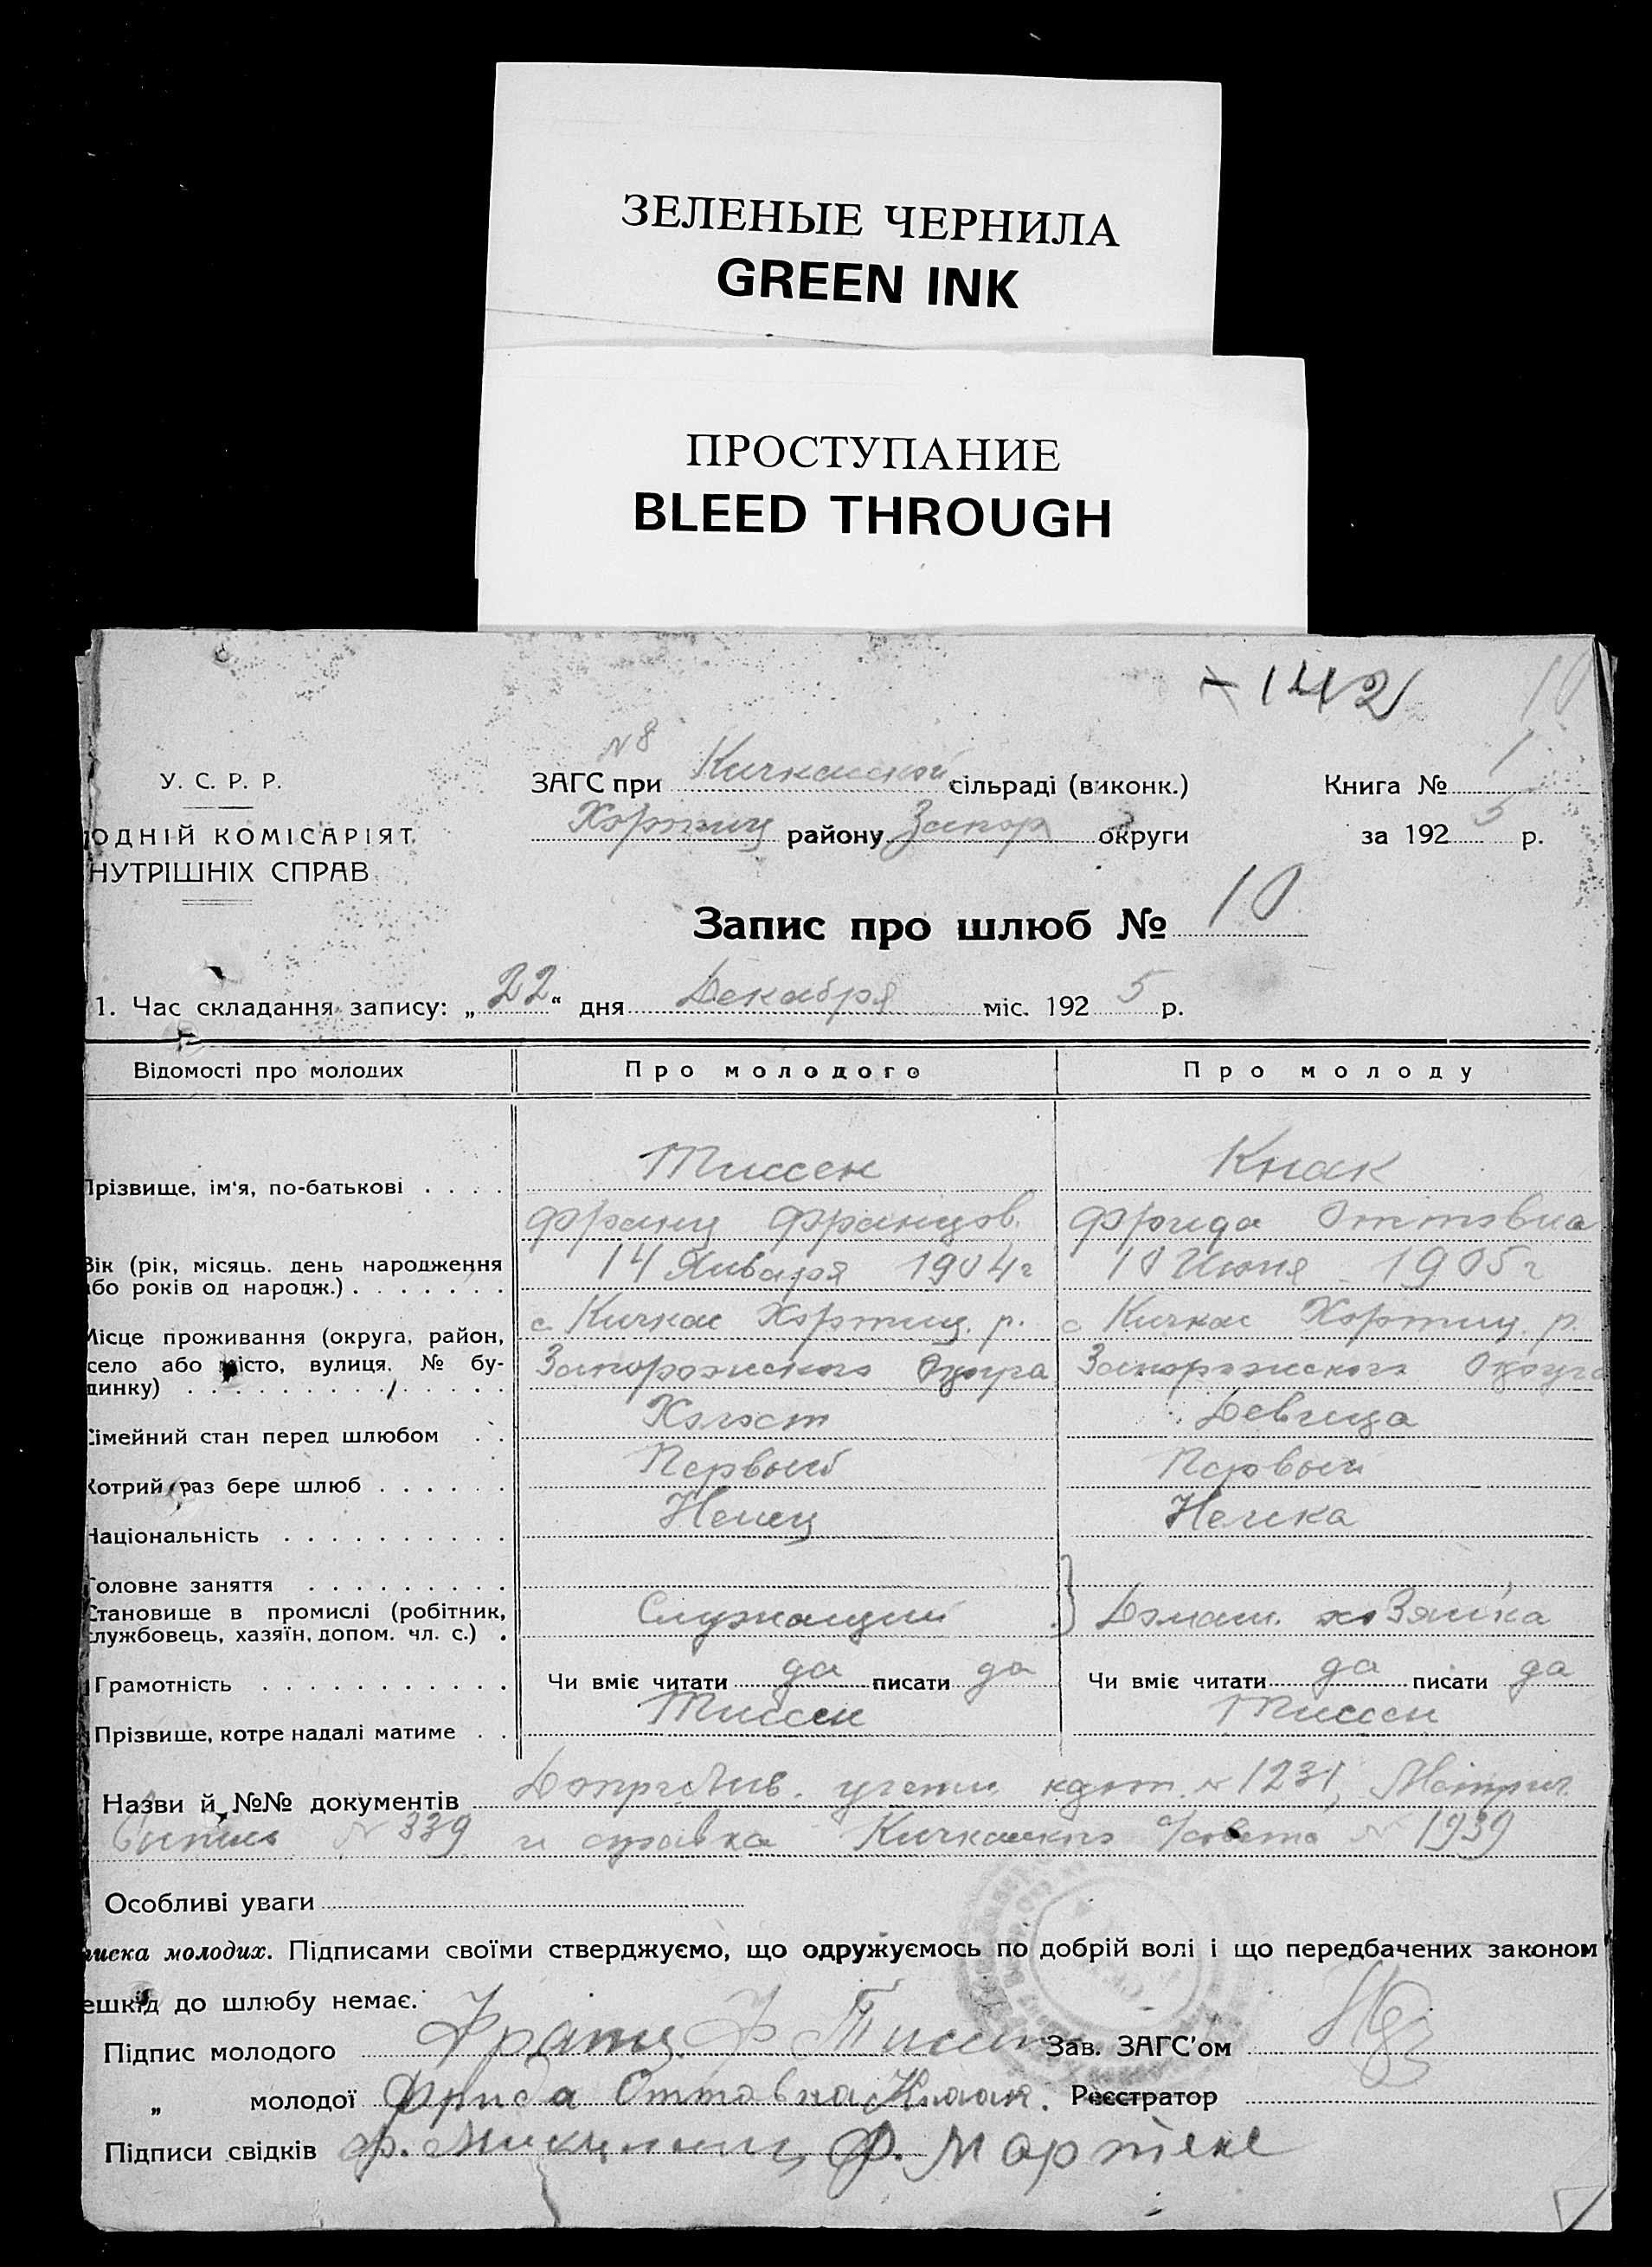 ЗЕЛЕНЫЕ ЧЕРНИЛА
GREEN INK
ПРОСТУПАНИЕ
BLEED THROUGH
142 10
N 8
У. С. Р. Р. ЗАГС при Кичкасской сільраді (виконк.) Книга № 1
ОДНІЙ КОМІСАРІЯТ Хортиц району Запор округи за 192 5 р.
НУТРІШНІХ СПРАВ
Запис про шлюб № 10
1. Час складання запису: „ 22 “ дня Декабря міс. 192 5 р.
Відомості про молодих Про молодого Про молоду
Прізвище, ім'я, по-батькові . . . . Тиссен Кнак
Франц Францов. Фрида Оттовна
Вік (рік, місяць. день народження або років од народж.) . . . . . . . 14 Января 1904 г 10 Июня 1905 г
Місце проживання (округа, район, с. Кичкас Хортиц. р. с Кичкас Хортиц. р.
село або місто, вулиця, № бу- Запорожского Округа Запорожского Округа
динку) . . . . . . . . . . . .
Сімейний стан перед шлюбом . . Холост Девица
Котрий раз бере шлюб . . . . . . Первый Первый
Національність . . . . . . . . . . Немец Немка
Головне заняття . . . . . . . . .
Становище в промислі (робітник, Служащий Домаш. хозяйка
службовець, хазяїн, допом. чл. с.) .
Грамотність . . . . . . . . . . . Чи вміє читати да писати да Чи вміє читати да писати да
Прізвище, котре надалі матиме . . Тиссен Тиссен
Назви й №№ документів Допризыв. учетн. карт. N 1231, Метрич.
Выпись N 339 и справка Кичкасского С/совета N 1939
Особливі уваги
писка молодих. Підписами своїми стверджуємо, що одружуємось по добрій волі і що передбачених законом
ешкід до шлюбу немає.
Підпис молодого Франц Ф Тиссен Зав. ЗАГС'ом
„ молодої Фрида Оттовна Кнак. Реєстратор
Підписи свідків Ф. Ф. Мартенс